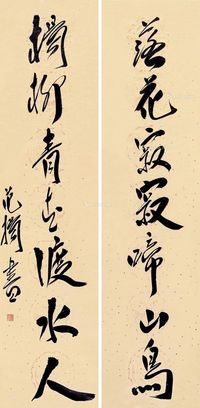 落花寂寂啼山鳥
楊柳青々渡水人
范揚書